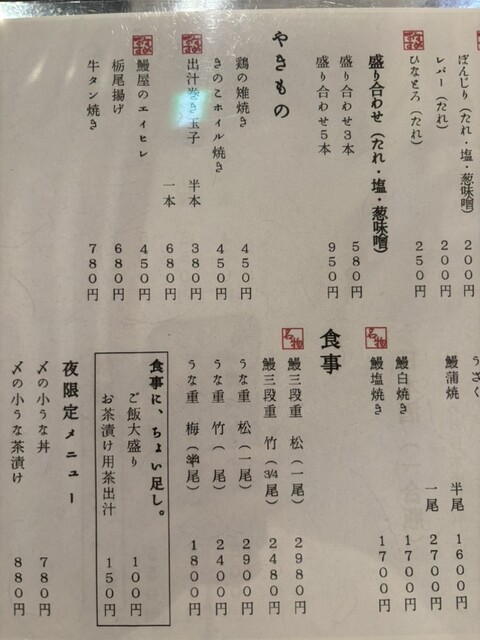 ぼんじり（たれ・塩・葱味噌） 200円
レバー（たれ） 200円
ひなとろ（たれ） 250円
盛り合わせ（たれ・塩・葱味噌）
盛り合わせ3本 580円
盛り合わせ5本 950円
やきもの
鶏の雉焼き 450円
きのこホイル焼き 450円
出汁巻き玉子 半本 380円
一本 680円
鰻屋のエイヒレ 450円
栃尾揚げ 680円
牛タン焼き 780円
うざく
鰻蒲焼 半尾 1600円
一尾 2700円
鰻白焼き 1700円
名物
鰻塩焼き 1700円
食事
名物
鰻三段重 松（一尾） 2980円
鰻三段重 竹（3/4尾） 2480円
うな重 松（一尾） 2900円
うな重 竹（ 尾） 2400円
うな重 梅（ 尾） 1800円
食事に、ちょい足し。
ご飯大盛り 100円
お茶漬け用茶出汁 150円
夜限定メニュー
〆の小うな丼 780円
〆の小うな茶漬け 880円